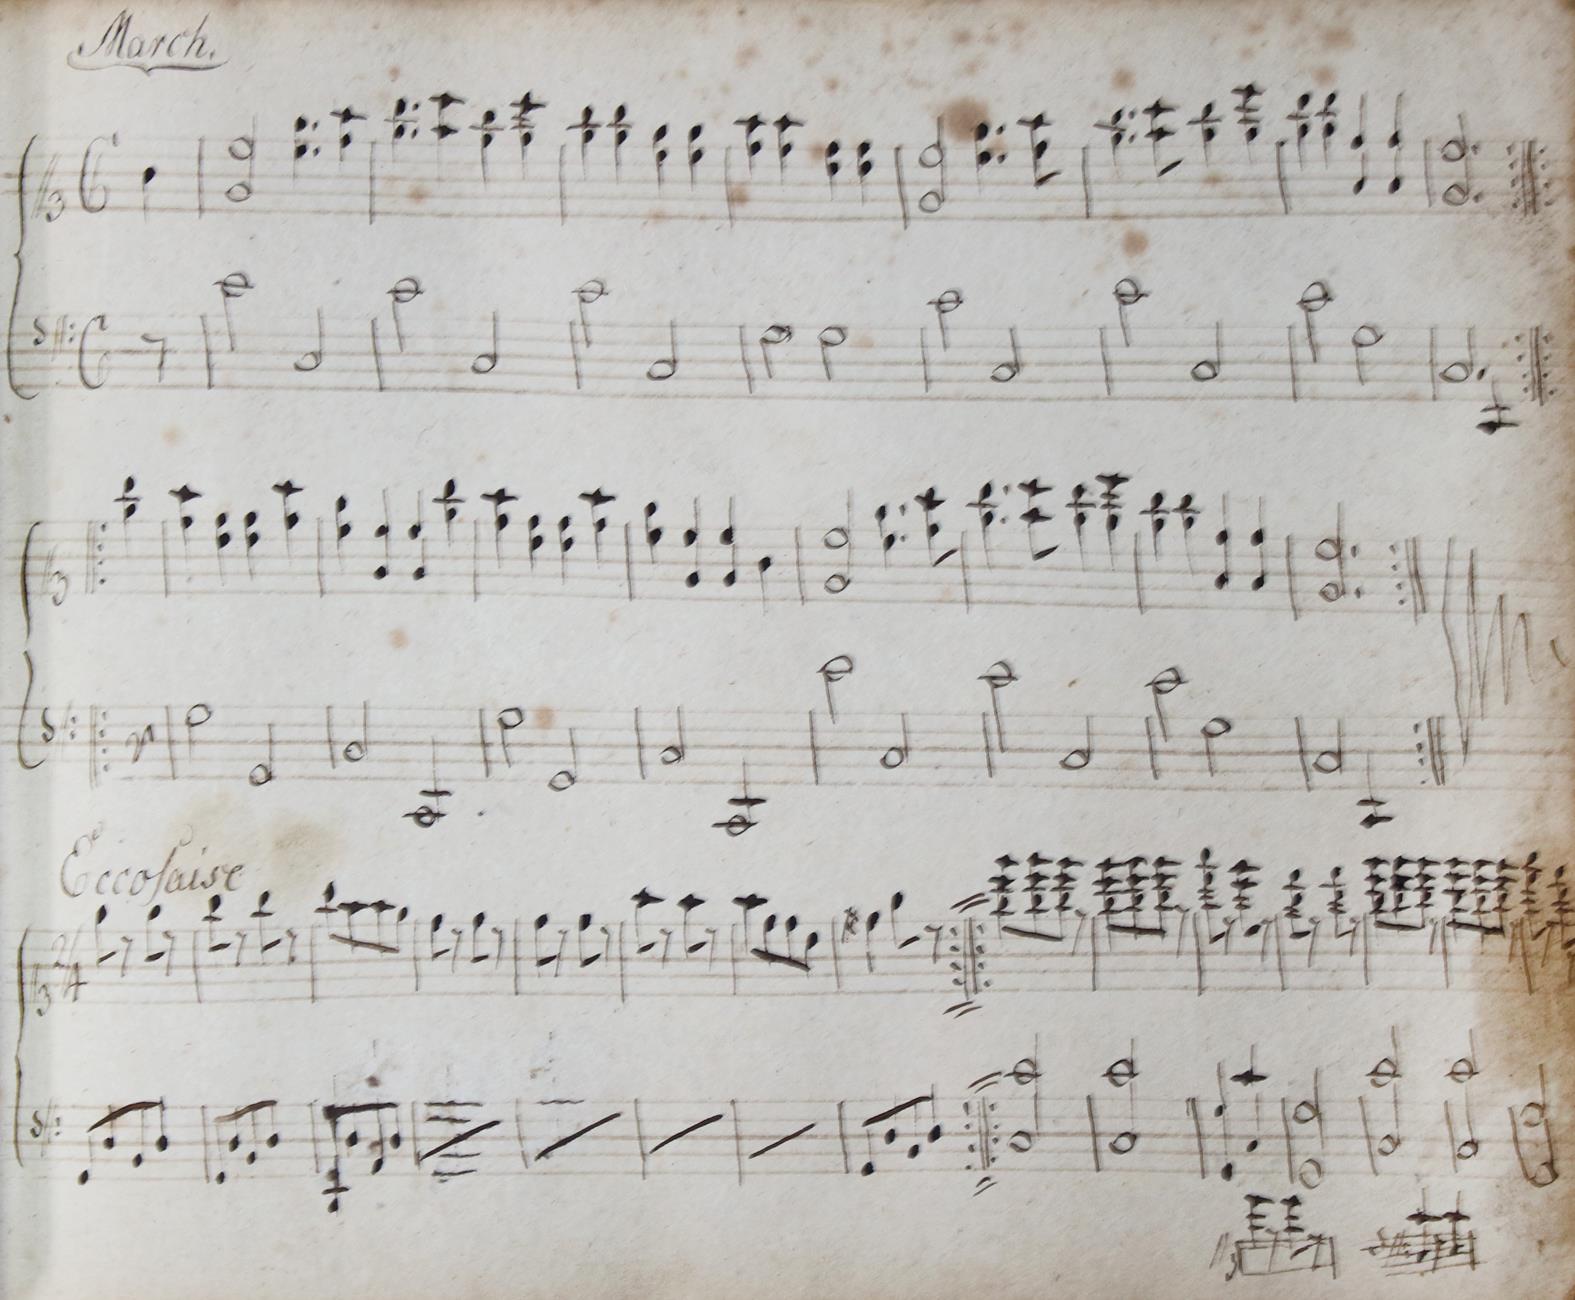 March.
Eccoſaise
2/4